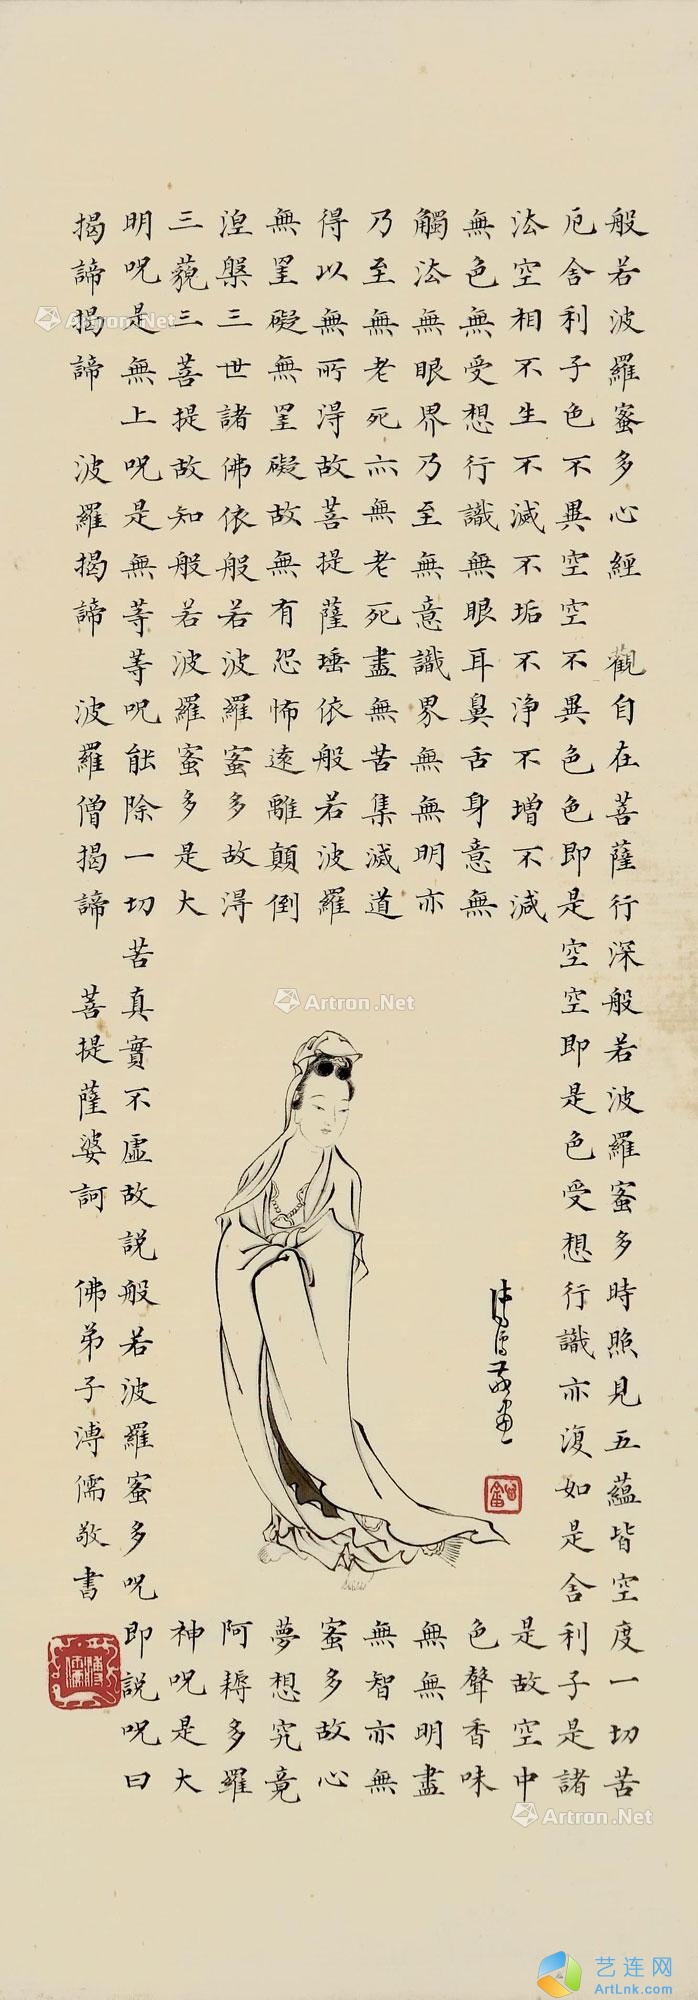 般若波羅蜜多心經　觀自在菩薩行深般若波羅蜜多時照見五蘊皆空度一切苦
厄舍利子色不異空空不異色色即是空空即是色受想行識亦復如是舍利子是諸
法空相不生不滅不垢不淨不增不減是故空中
無色無受想行識無眼耳鼻舌身意無色聲香味
觸法無眼界乃至無意識界無無明亦無無明盡
乃至無老死亦無老死盡無苦集滅道無智亦無
得以無所得故菩提薩埵依般若波羅蜜多故心
無罣礙無罣礙故無有恐怖遠離顛倒夢想究竟
涅槃三世諸佛依般若波羅蜜多故得阿耨多羅
三藐三菩提故知般若波羅蜜多是大神呪是大
明呪是無上呪是無等等呪能除一切苦真實不虛故說般若波羅蜜多呪即說呪曰
揭諦揭諦　波羅揭諦　波羅僧揭諦　菩提薩婆訶　佛弟子溥儒敬書
溥儒敬畫
溥儒
Artron.Net
Artron.Net
Artron.Net
艺连网
ArtLnk.com